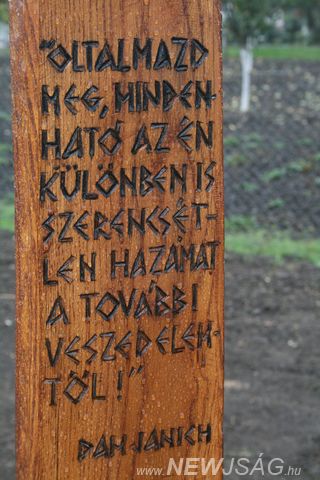 "OLTALMAZD
MEG, MINDEN-
HATÓ AZ ÉN
KÜLÖNBEN IS
SZERENCSÉT-
LEN HAZÁMAT
A TOVÁBBI
VESZEDELEK-
TŐL!"
DAH-JANICH
www.NEWJSÁG.hu